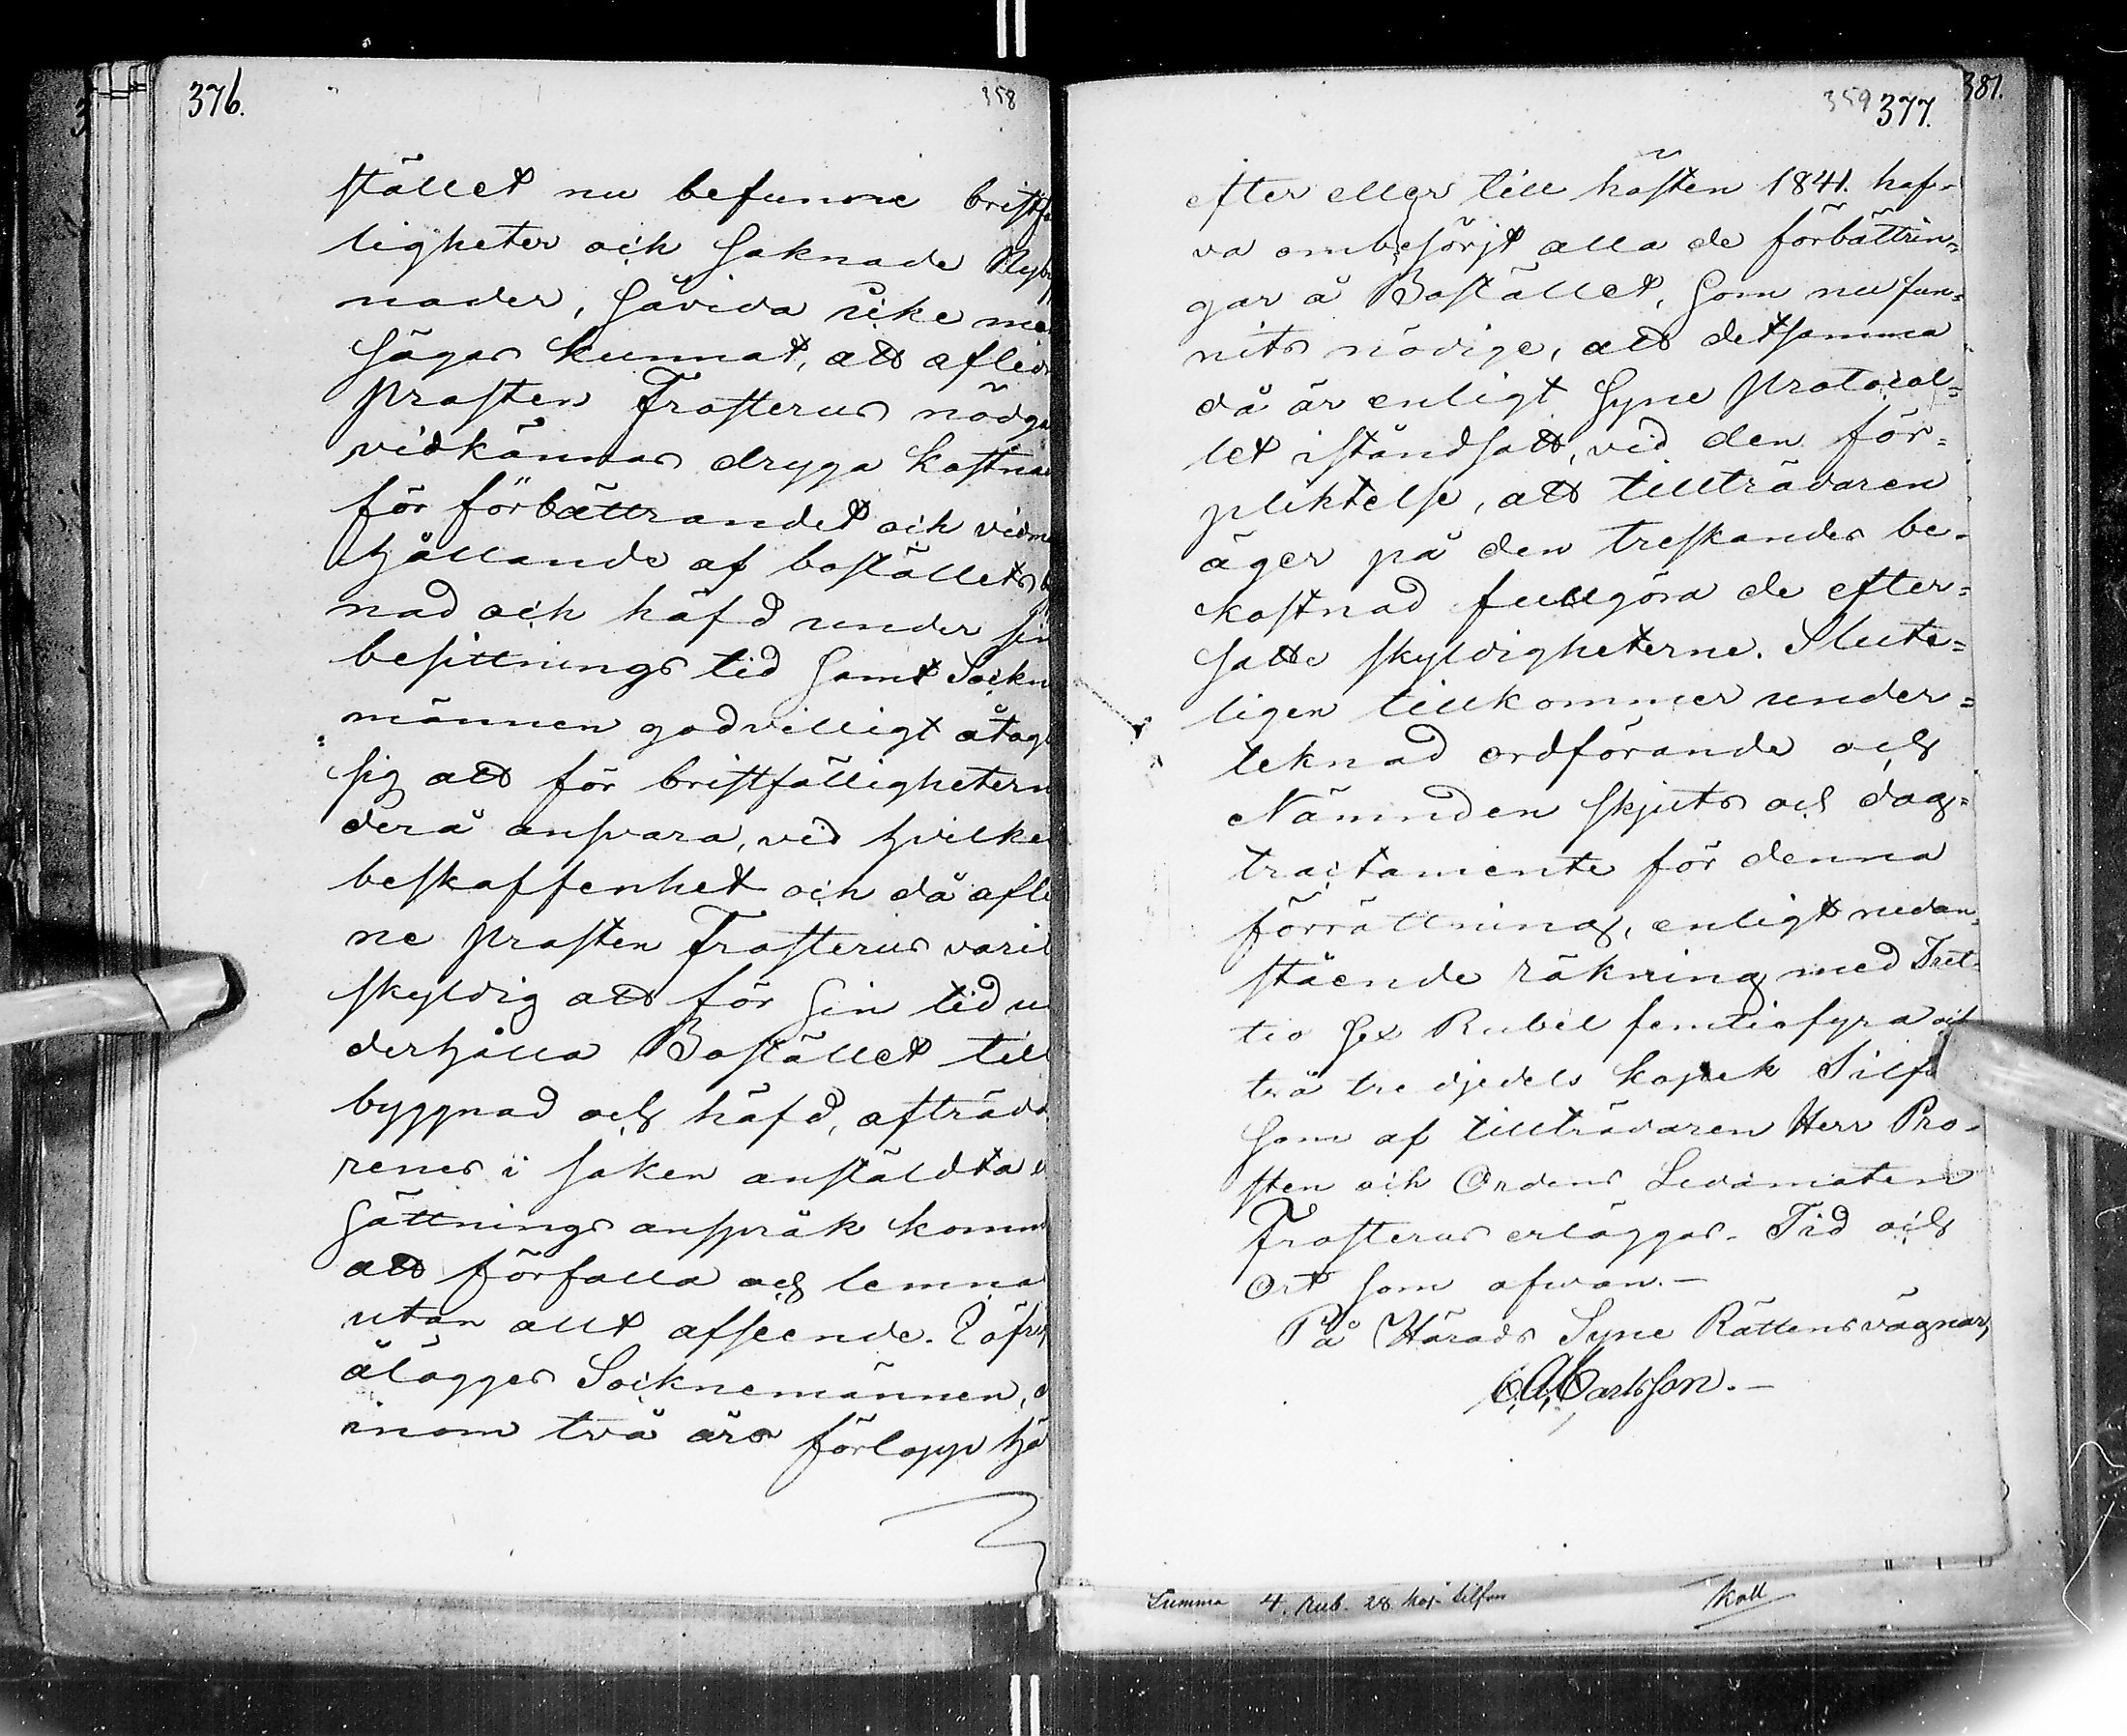 376.
358
stället nu befunne bristfä
ligheter och saknade Nyb
nader, såvida icke me
sägas kunnat, att aflid
prosten Frosterus nödga
vidkännas dryga kostnad
för förbättrandet och vidma
hållande af boställets b
nad och häfd under sin
besittnings tid samt Sockne
männen godvilligt åtag
sig att för bristfälligheterne
derå ansvara, vid hvilken
beskaffenhet och då afled
ne prosten Frosterus varit
skyldig att för sin tid un
derhålla Bostället till
byggnad och häfd, afträda
renes i saken anstäldta e
sättnings anspråk komma
att förfalla och lemnas
utan allt afseende. I öfrigt
ålägges Socknemännen, a
inom två års förlopp hä
381.
359
377.
efter eller till hösten 1841. haf-
va ombesörjt alla de förbättrin=
gar å Bostället, som nu fun=
nits nödige, att detsamma
då är enligt Syne protocol=
let iståndsatt, vid den för=
pliktelse, att tillträdaren
äger på den treskandes be-
kostnad fullgöra de efter=
satte skyldigheterne. Slute=
ligen tillkommer under=
teknad ordförande och
Nämnden skjuts och dag=
tractamente för denna
förrättning, enligt nedan=
stående räkning med Tret=
tio sex Rubel femtiofyra och
två tredjedels kopek Silf
som af tillträdaren Herr Pro-
sten och Ordens Ledamoten
Frosterus erlägges. Tid och
Ort som ofwan.-
På Härads Syne Rättens vägnar,
C. A. Carlsson.-
Summa 4. Rub. 28 kop. silfver
Koll